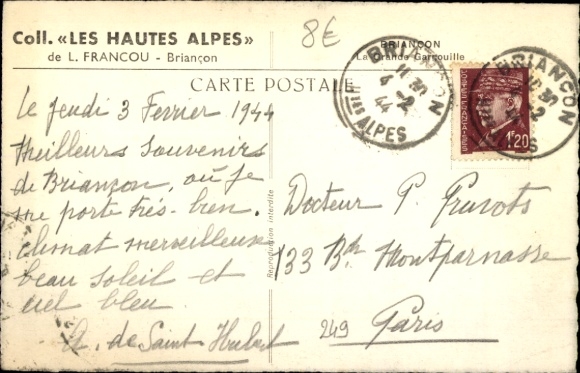 Coll. «LES HAUTES ALPES»
de L. FRANCOU - Briançon
8€
BRIANÇON
La Grande Gargouille
CARTE POSTALE
BRIANÇON
4 -2
44
Htes ALPES
BRIANÇON
1F20
Le jeudi 3 Février 1944
Meilleurs Souvenirs
de Briançon, où je
me porte très bien.
climat merveilleux
beau soleil et
ciel bleu.
A. de Saint Hubert
Reproduction interdite
Docteur P. Pruvots
133 Bd Montparnasse
249 Paris